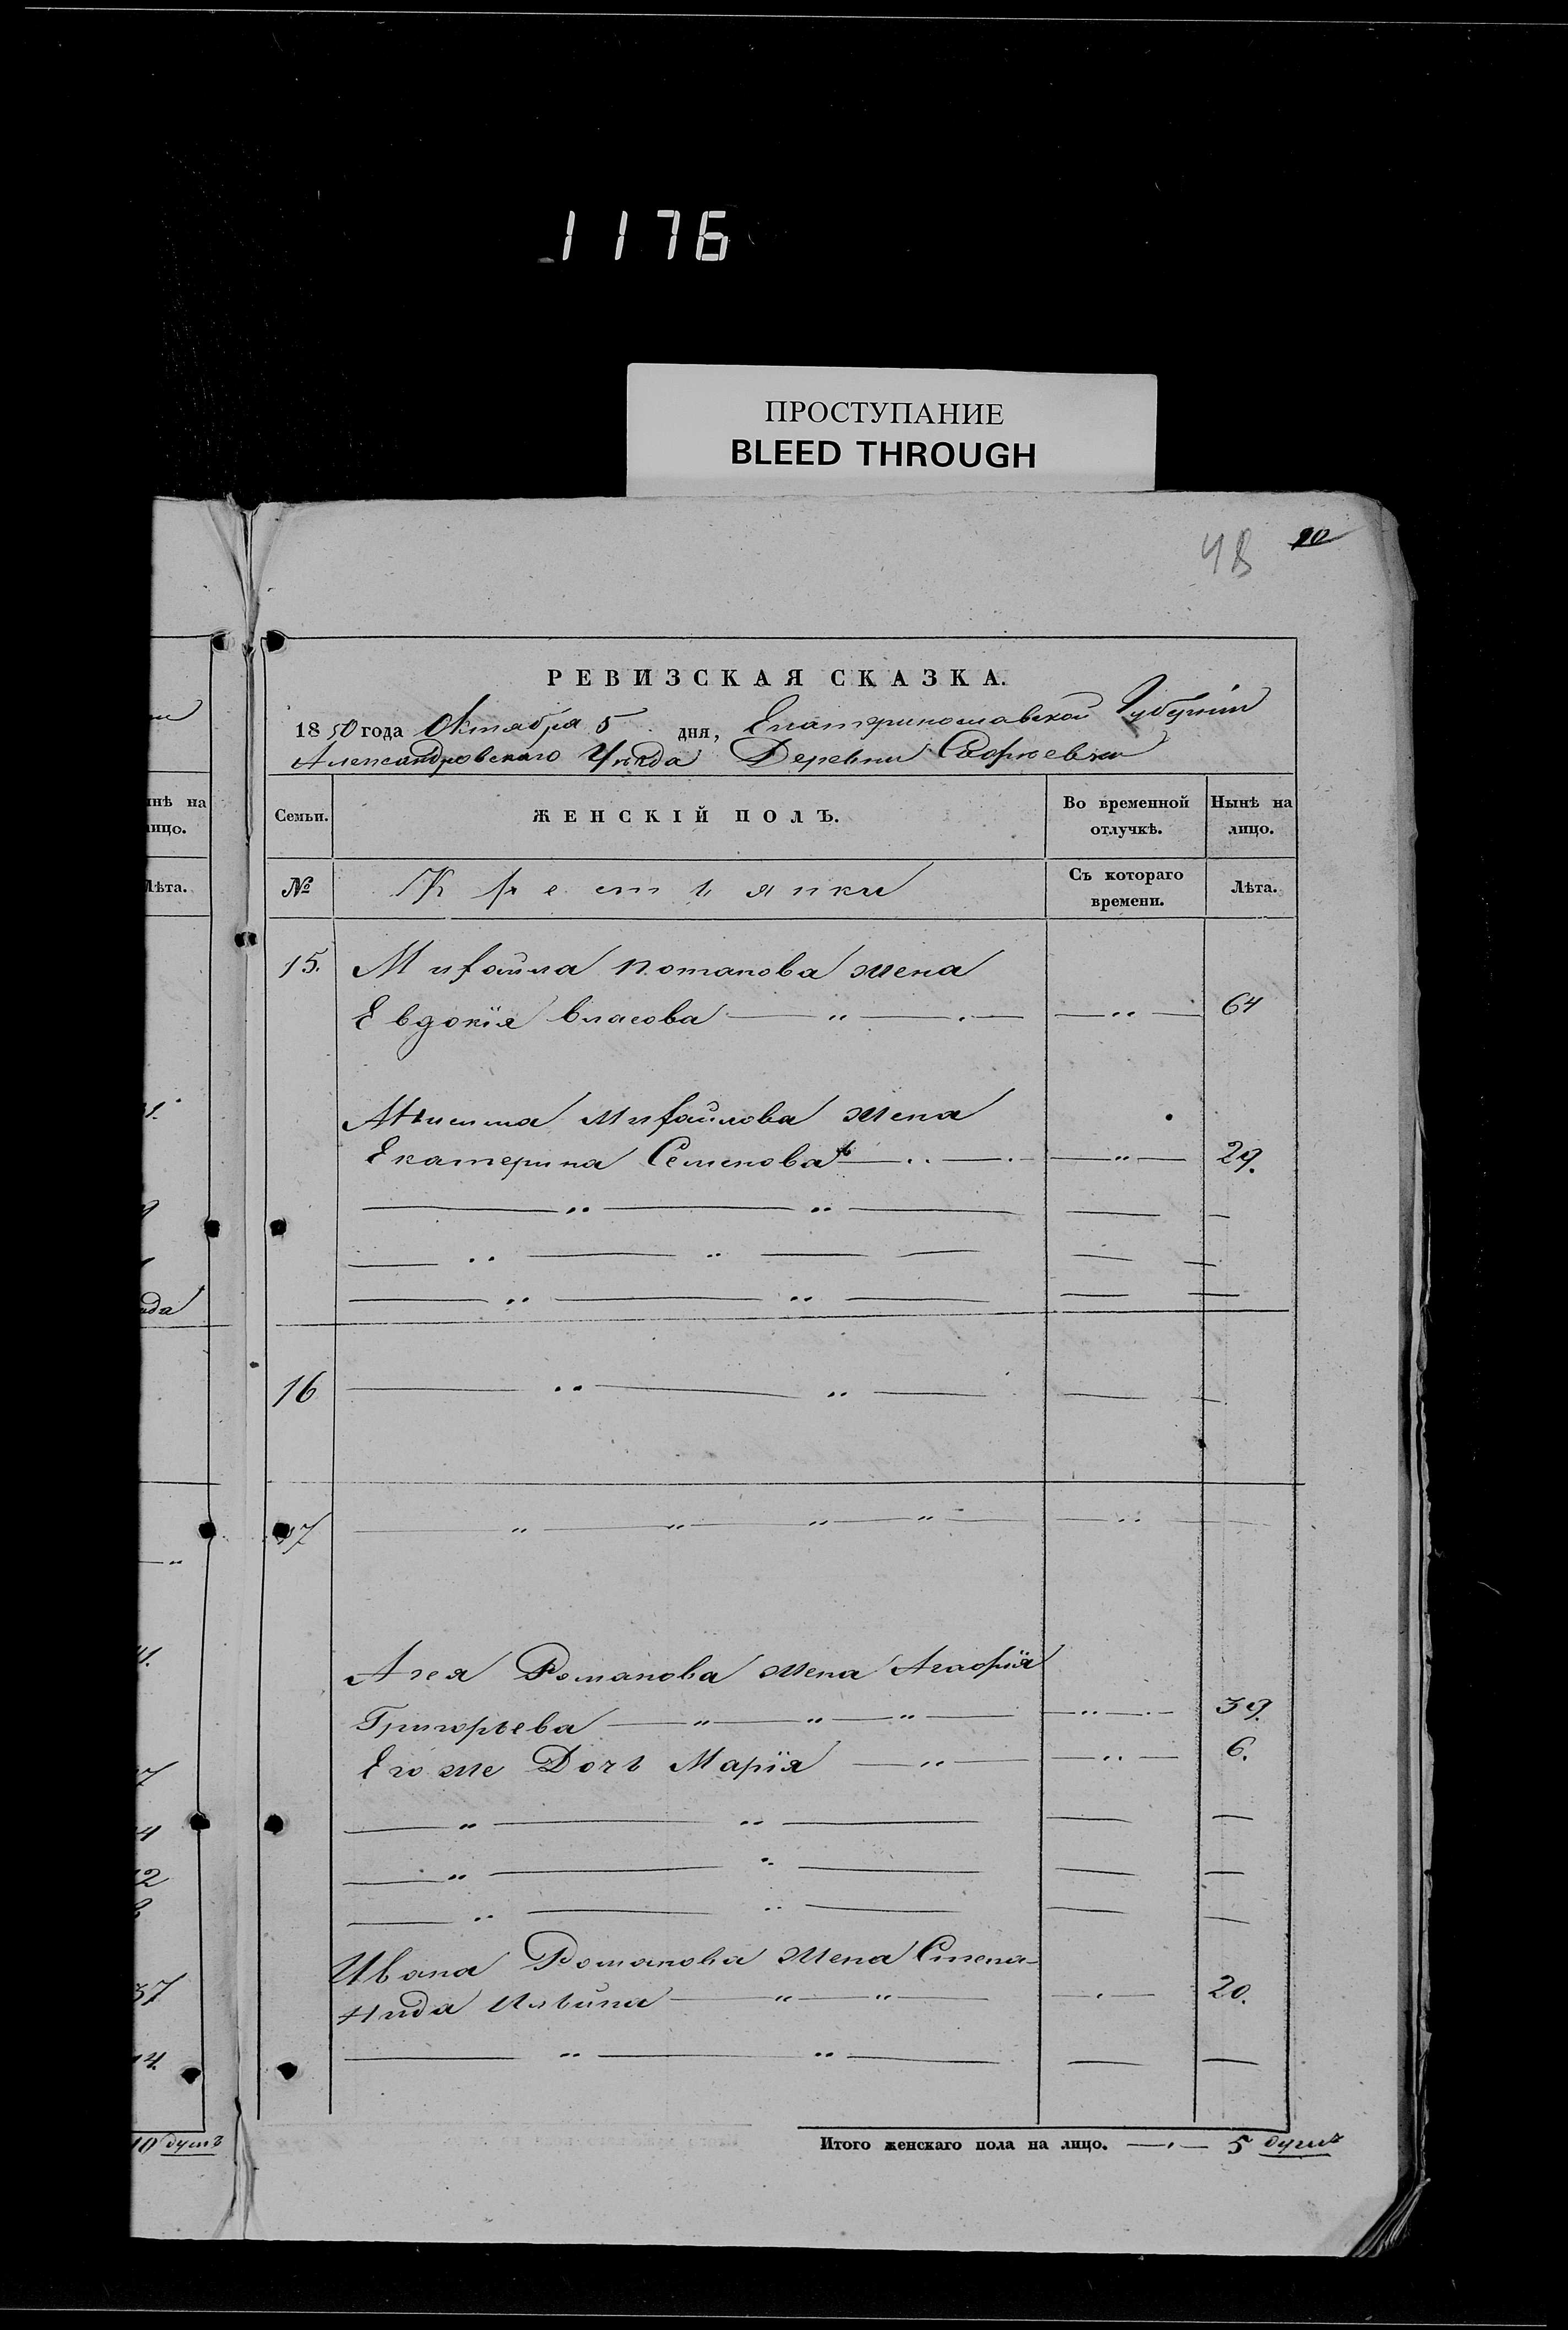 1176
ПРОСТУПАНИЕ
BLEED THROUGH
48 10
РЕВИЗСКАЯ СКАЗКА.
1850 года Октября 5 дня, Екатеринославской Губерніи
Александровскаго Уѣзда Деревни
нѣ на
ицо.
Лѣта.
Семьи.
ЖЕНСКІЙ ПОЛЪ.
Во временной отлучкѣ.
Нынѣ на лицо.
№
Крестьянки
Съ котораго времени.
Лѣта.
15. Михайла Потапова жена
Евдокія Власова — " — . — — " — 64
Михайлова жена
Екатерина Семенова — . . — . — " — 29.
16
17
Романова жена Агафія
Григорьева — " — " — " — — " — . — 39.
Его же Дочь Марія — " — — . . — 6.
Ивана Романова жена Степа-
нида Ильина — " — " — — . — 20.
37
14.
10 душъ
Итого женскаго пола на лицо. — . — 5 душъ